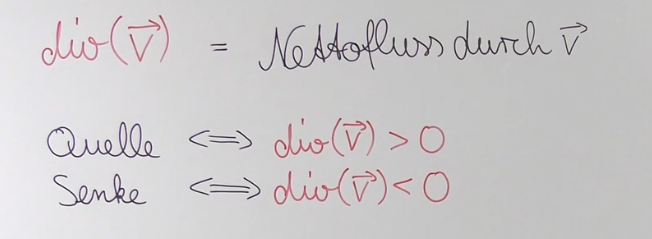 div(v⃗) = Nettofluss durch v⃗
Quelle ⟺ div(v⃗) > 0
Senke ⟺ div(v⃗) < 0